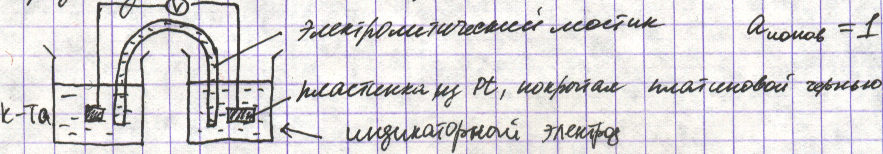 V
электролитический мостик
a ионов = 1
пластинка из Pt, покрытая платиновой чернью
к-та
индикаторный электрод